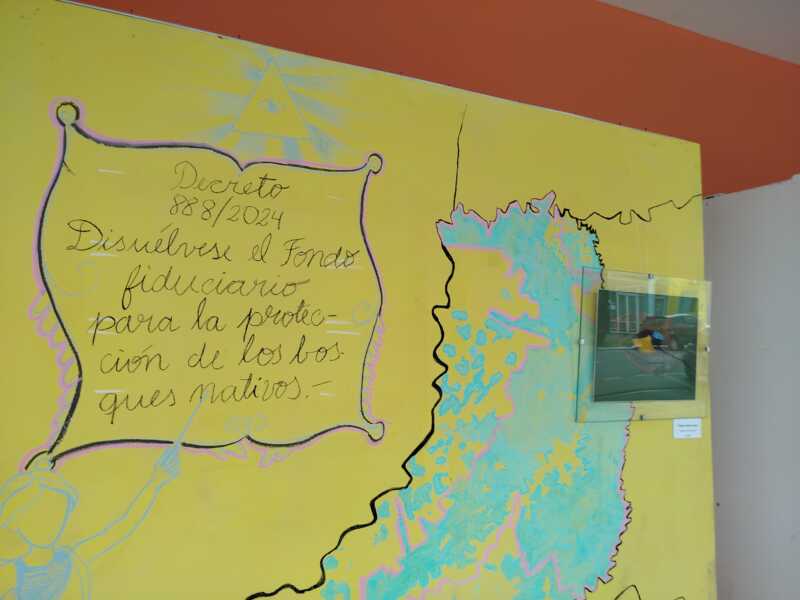 Decreto
888/2024
Disuélvese el Fondo
fiduciario
para la protec-
ción de los bos-
ques nativos.-